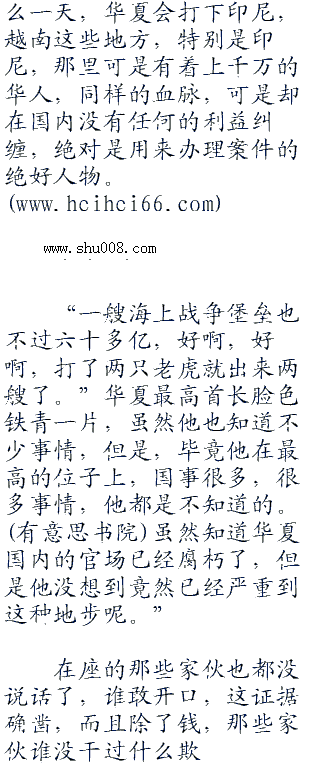 么一天，华夏会打下印尼，
越南这些地方，特别是印
尼，那里可是有着上千万的
华人，同样的血脉，可是却
在国内没有任何的利益纠
缠，绝对是用来办理案件的
绝好人物。
(www.hcihci66.com)
www.shu008.com
“一艘海上战争堡垒也
不过六十多亿，好啊，好
啊，打了两只老虎就出来两
艘了。”华夏最高首长脸色
铁青一片，虽然他也知道不
少事情，但是，毕竟他在最
高的位子上，国事很多，很
多事情，他都是不知道的。
(有意思书院)虽然知道华夏
国内的官场已经腐朽了，但
是他没想到竟然已经严重到
这种地步呢。”
在座的那些家伙也都没
说话了，谁敢开口，这证据
确凿，而且除了钱，那些家
伙谁没干过什么欺